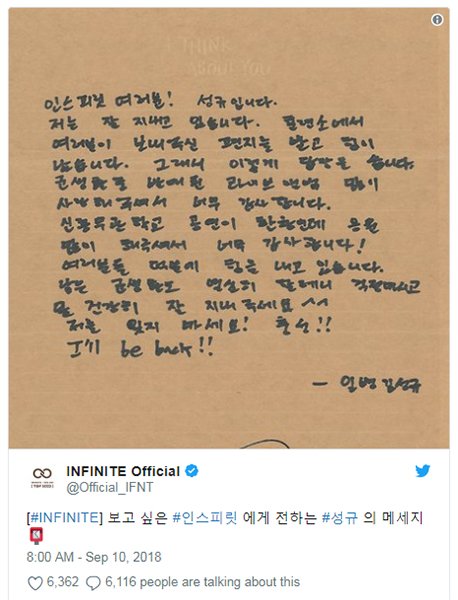 THINK
ABOUT YOU
인스피릿 여러분! 성규입니다.
저는 잘 지내고 있습니다. 훈련소에서
여러분이 보내주신 편지를 받고 힘이
났습니다. 그래서 이렇게 답장을 씁니다.
군생활 중 발매된 라이브앨범 많이
사랑해주셔서 너무 감사합니다.
신흥무관학교 공연이 한창인데 응원
많이 해주셔서 너무 감사합니다!
여러분들 덕분에 힘을 내고 있습니다.
남은 군생활도 열심히 할테니 걱정마시고
몸 건강히 잘 지내주세요 ^^
저를 잊지 마세요! 충성!!
I'll be back!!
– 일병 김성규
INFINITE Official
@Official_IFNT
[#INFINITE] 보고 싶은 #인스피릿 에게 전하는 #성규 의 메세지
8:00 AM - Sep 10, 2018
6,362 6,116 people are talking about this